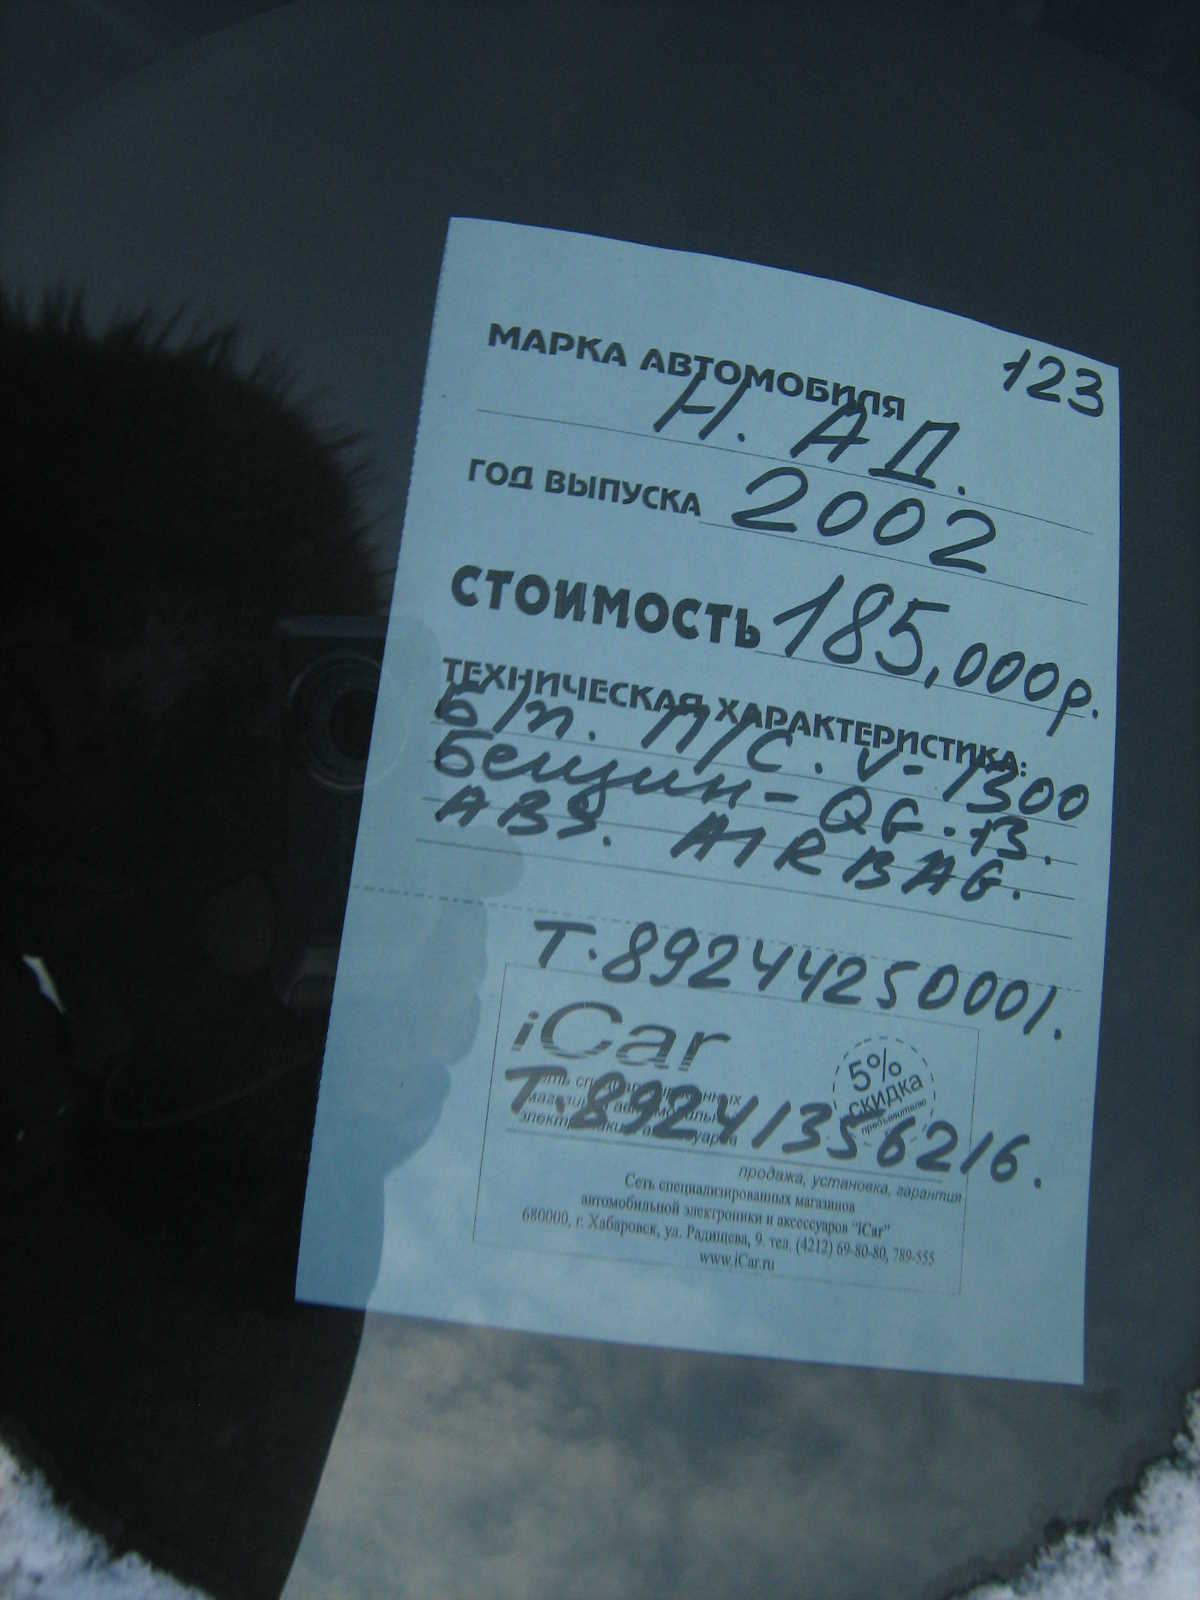 123
МАРКА АВТОМОБИЛЯ
Н. АД.
ГОД ВЫПУСКА 2002
СТОИМОСТЬ 185,000р.
ТЕХНИЧЕСКАЯ ХАРАКТЕРИСТИКА:
Б/п. П/С. V-1300
Бензин-QG.13.
ABS. AIRBAG.
Т.89244250001.
iCar
5%
скидка
предъявителю
Сеть специализированных
магазинов автомобильной
электроники и аксессуаров
Т.89241356216.
продажа, установка, гарантия
Сеть специализированных магазинов
автомобильной электроники и аксессуаров "iCar"
680000, г. Хабаровск, ул. Радищева, 9. тел. (4212) 69-80-80, 789-555
www.iCar.ru